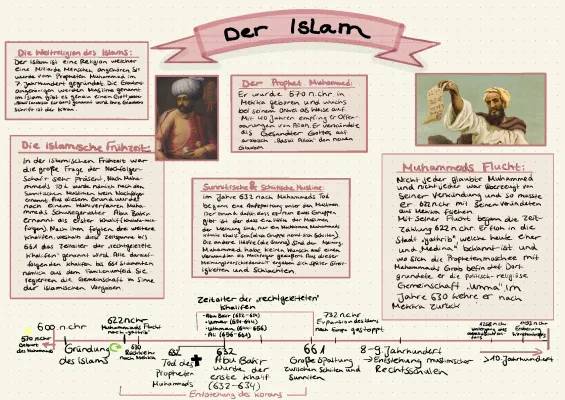 Der Islam
Die Weltreligion des Islams:
Der Islam ist eine Religion welcher
eine Milliarde Menschen angehören. Sie
wurde vom Propheten Muhammad im
7. Jahrhundert gegründet. Die
angehörigen werden Muslime genannt.
Im Islam gibt es genau einen Gott
genannt wird. Ihre
Schrift ist der Koran.
Der Prophet Muhammad:
Er wurde 570 n.chr in
Mekka geboren und wuchs
bei seinem Onkel als Waise auf.
Mit 40 Jahren empfing er Offen-
barungen von Allah. Er verkündete
als Gesandter Gottes auf
arabisch „Rasul Allah" den neuen
Glauben
Die islamische Frühzeit:
In der islamischen Frühzeit war
die große Frage der Nachfolger-
schaft sehr präsent. Nach Muha-
mmads Tod wurde nämlich nach den
Sunnitischen Muslimen kein Nachfolger
ernannt. Aus diesem Grund wurde
nach einem Wahlverfahren Muha-
mmads Schwiegervater Abu Bakr
ernannt als erster Khalif (Khalif=Nach-
folger). Nach ihm folgten drei weitere
Khalifen, weshalb diese Zeitspanne bis
661 das Zeitalter der „rechtgeleitete
Khalifen" genannt wird. Alle darauf-
folgenden Khalifen bis 661 stammten
nämlich aus dem Familienumfeld. Sie
regierten die Gemeinschaft im Sinne
der islamischen Vorgaben
Sunnitische & Schiitische Muslime:
Im Jahre 632 nach Muhammads Tod
begann eine Aufspaltung unter den Muslimen.
Der Grund dafür, dass es nun zwei Gruppen
gibt ist der dass eine Hälfte der Muslime,
der Meinung sind, nur ein Nachkomme Muhammads
könnte Khalif sein
Die andere Hälfte (die Sunna) sind der Meinung,
Muhammad habe keinen Wunsch auf einen
Verwandten als Nachfolger geäußert. Aus dieser
Meinungsverschiedenheit ergaben sich spätere Strei-
tigkeiten und Schlachten
Muhammads Flucht:
Nicht jeder glaubte Muhammad
und nicht jeder war überzeugt von
seiner Verkündung und so musste
er 622 n.chr mit seinen Verwandten
aus Mekka fliehen.
Mit seiner Flucht begann die Zeit-
zählung 622 n.chr. Er floh in die
Stadt „jathrib", welche heute eher
und „Medina" bekannt ist und
wo sich die Prophetenmoschee mit
Muhammads Grab befindet. Dort
gründete er die politisch-religiöse
Gemeinschaft „Umma". Im
Jahre 630 kehre er nach
Mekka zurück
Zeitalter der „rechtgeleiteten"
Khalifen
- Abu Bakr (632-634)
- Umar (634-644)
- Uthman (644-656)
- Ali (656-661)
600 n.chr
622 n.chr
Muhammads Flucht
nach „jathrib"
732 n.chr
Expansion des Islams
nach Europa gestoppt
1258 n.chr
1492 n.chr
570 n.chr
Geburt
des Muhammads
Gründung
des Islams
630
Rückkehr
nach Mekka
632
Tod des
Propheten
Muhammads
632
Abu Bakr
wurde der
erste Khalif
(632-634)
661
Große Spaltung
zwischen Schiiten und
Sunniten
8-9. Jahrhundert
→ Entstehung muslimischer
Rechtsschulen
>10. Jahrhundert
Entstehung des Korans